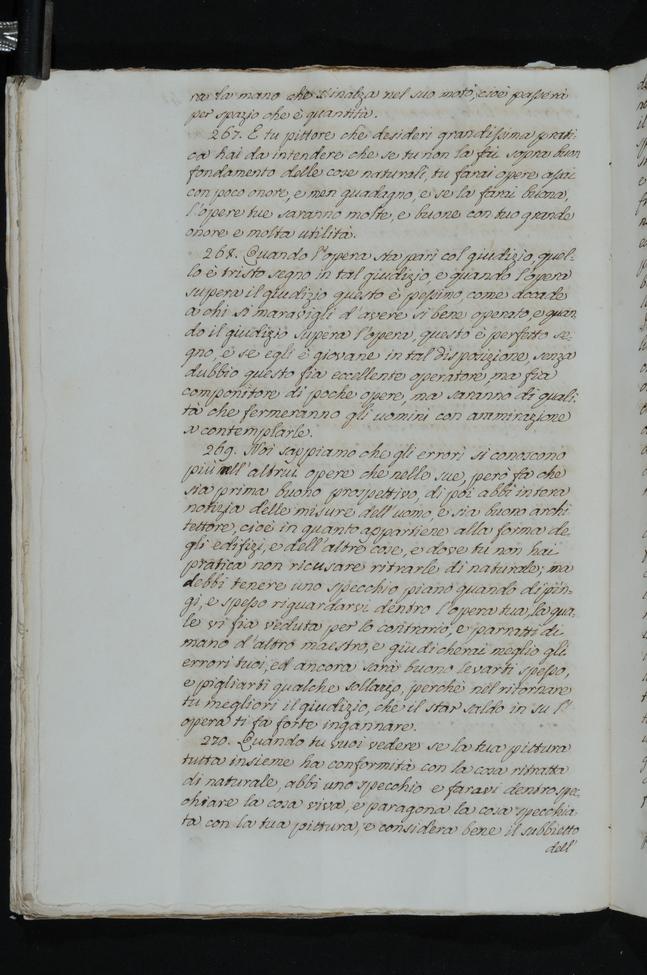 ra la mano che s'inalza nel suo moto, cioè passerà
per spazio che è quantità.
267. E tu pittore che desideri grandissima prati
ca hai da intendere che se tu non la fai sopra buon
fondamento delle cose naturali, tu farai opere assai
con poco onore, e men guadagno, e se la farai buona,
l'opere tue saranno molte, e buone con tuo grande
onore e molta utilità.
268. Quando l'opera sta pari col giudizio, quel-
lo è tristo segno in tal giudizio, e quando l'opera
supera il giudizio questo è pessimo, come accade
a chi si maravigli d'avere sì bene operato, e quan
do il giudizio supera l'opera, questo è perfetto se-
gno, e se egli è giovane in tal disposizione, senza
dubbio questo fia eccellente operatore, ma fia
componitore di poche opere, ma saranno di quali-
tà che fermeranno gli uomini con ammirazione
a contemplarle.
269. Noi sappiamo che gli errori si conoscono
più nell'altrui opere che nelle sue, però fa che
sia prima buono prospettivo, di poi abbi intera
notizia delle misure dell'uomo, e sia buono archi
tettore, cioè in quanto appartiene alla forma de-
gli edifizi, e dell'altre cose, e dove tu non hai
pratica non ricusare ritrarle di naturale; ma
debbi tenere uno specchio piano quando dipin-
gi, e spesso riguardarvi dentro l'opera tua, la qua-
le vi fia veduta per lo contrario, e parratti di
mano d'altro maestro, e giudicherai meglio gli
errori tuoi, ed ancora sarà buono levarti spesso,
e pigliarti qualche sollazzo, perchè nel ritornare
tu megliori il giudizio, che il star saldo in su l'
opera ti fa forte ingannare.
270. Quando tu vuoi vedere se la tua pittura
tutta insieme ha conformità con la cosa ritratta
di naturale, abbi uno specchio e faravi dentro spe-
chiare la cosa viva, e paragona la cosa specchia-
ta con la tua pittura, e considera bene il subbietto
dell'